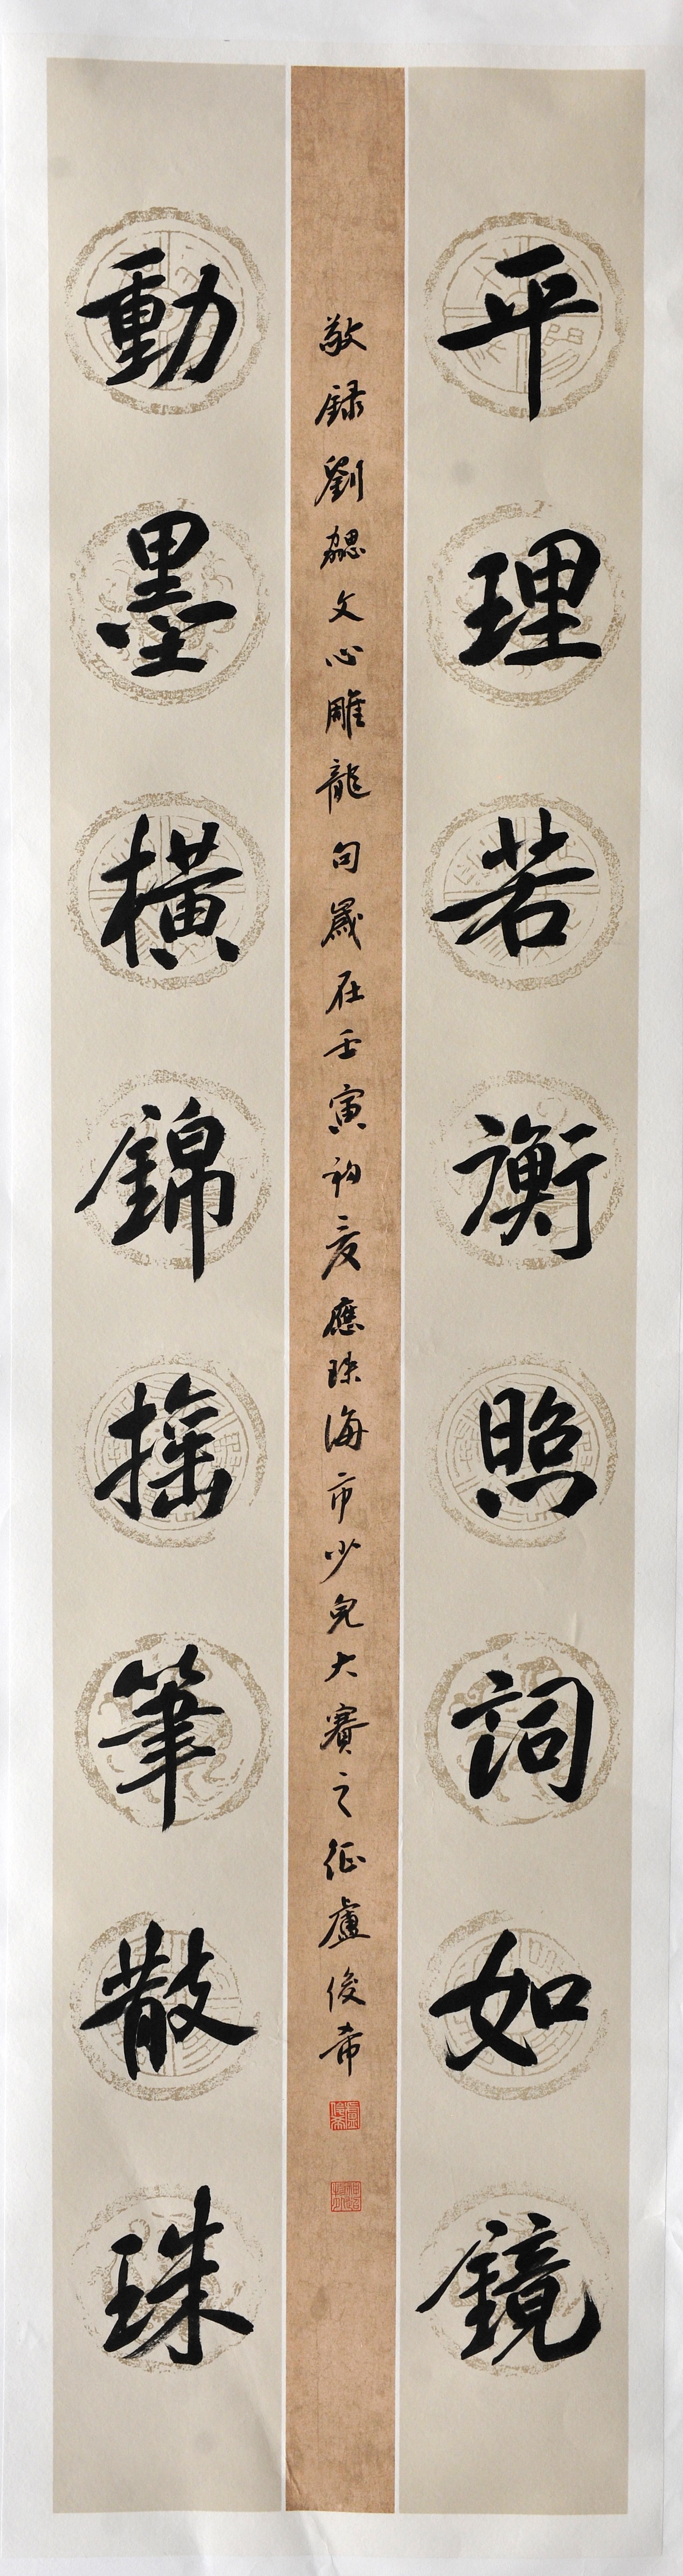 平理若衡照詞如鏡
敬録劉勰文心雕龍句歲在壬寅初夏應珠海市少兒大賽之征盧俊希
動墨橫錦搖筆散珠